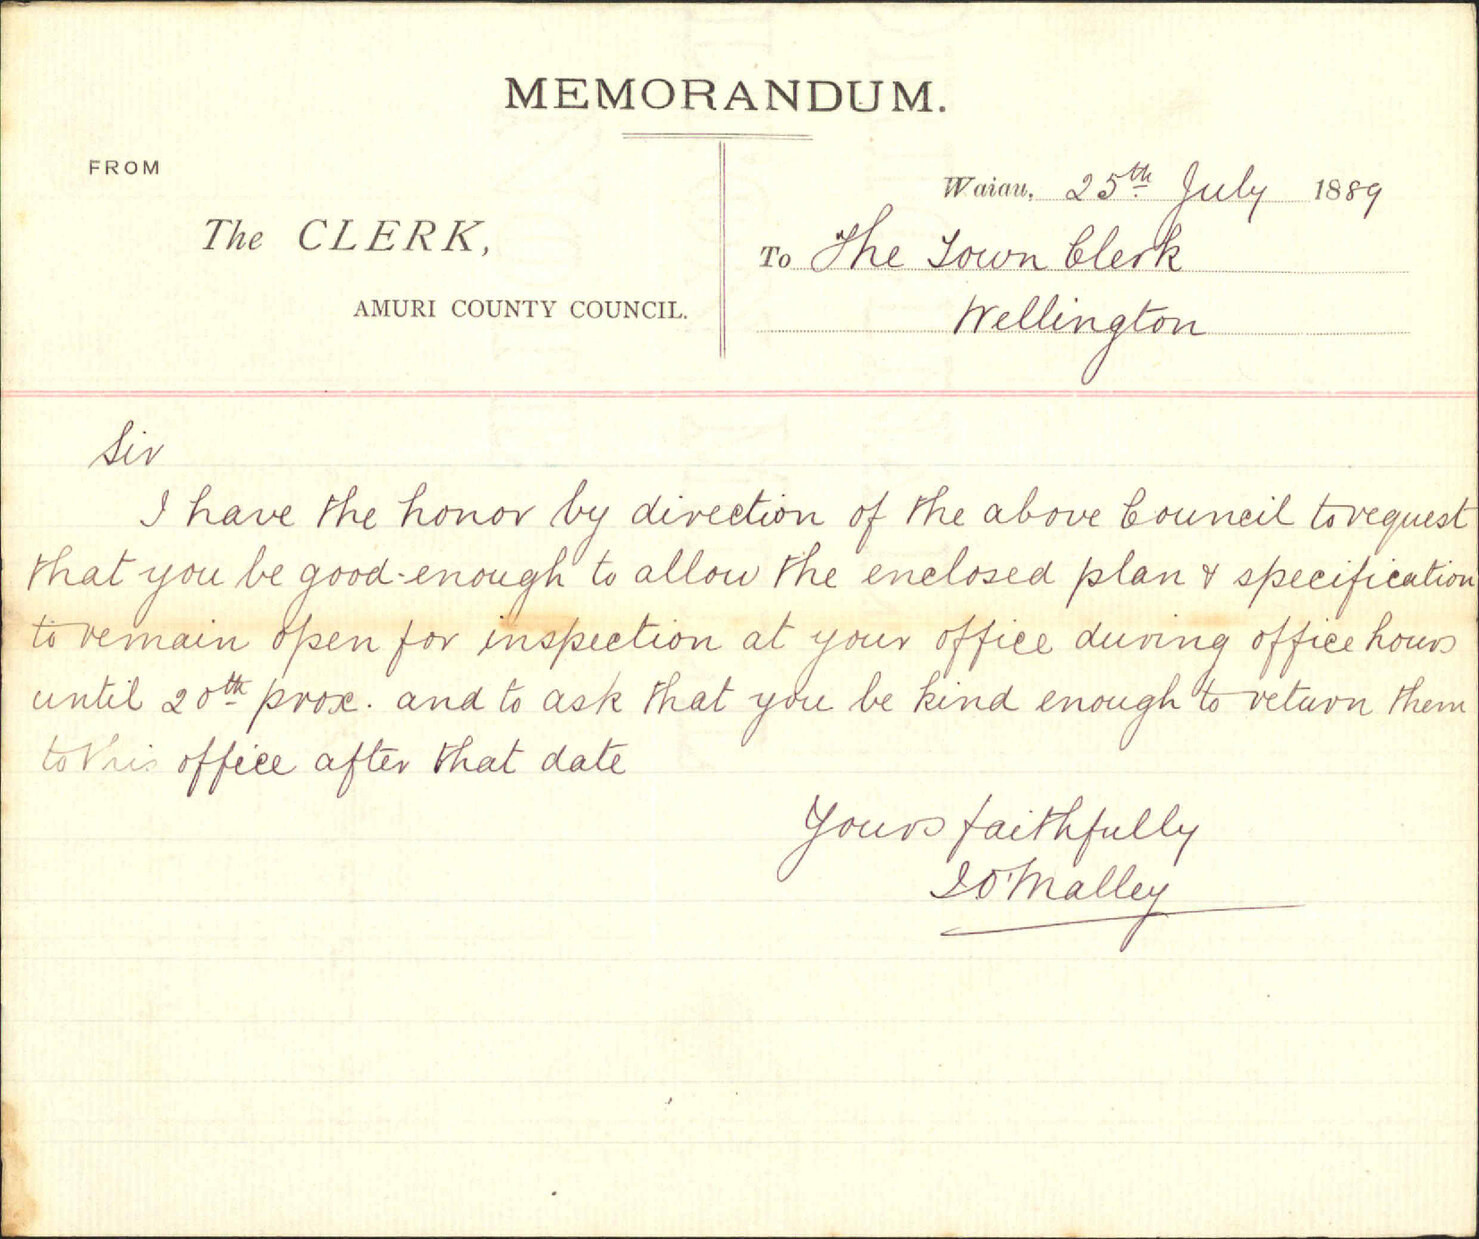 MEMORANDUM.
FROM
The CLERK,
AMURI COUNTY COUNCIL.
Waiau, 25th July 1889
To The Town Clerk
Wellington
Sir
I have the honor by direction of the above Council to request
that you be good enough to allow the enclosed plan & specification
to remain open for inspection at your office during office hours
until 20th prox. and to ask that you be kind enough to return them
to this office after that date
Yours faithfully
I O'Malley